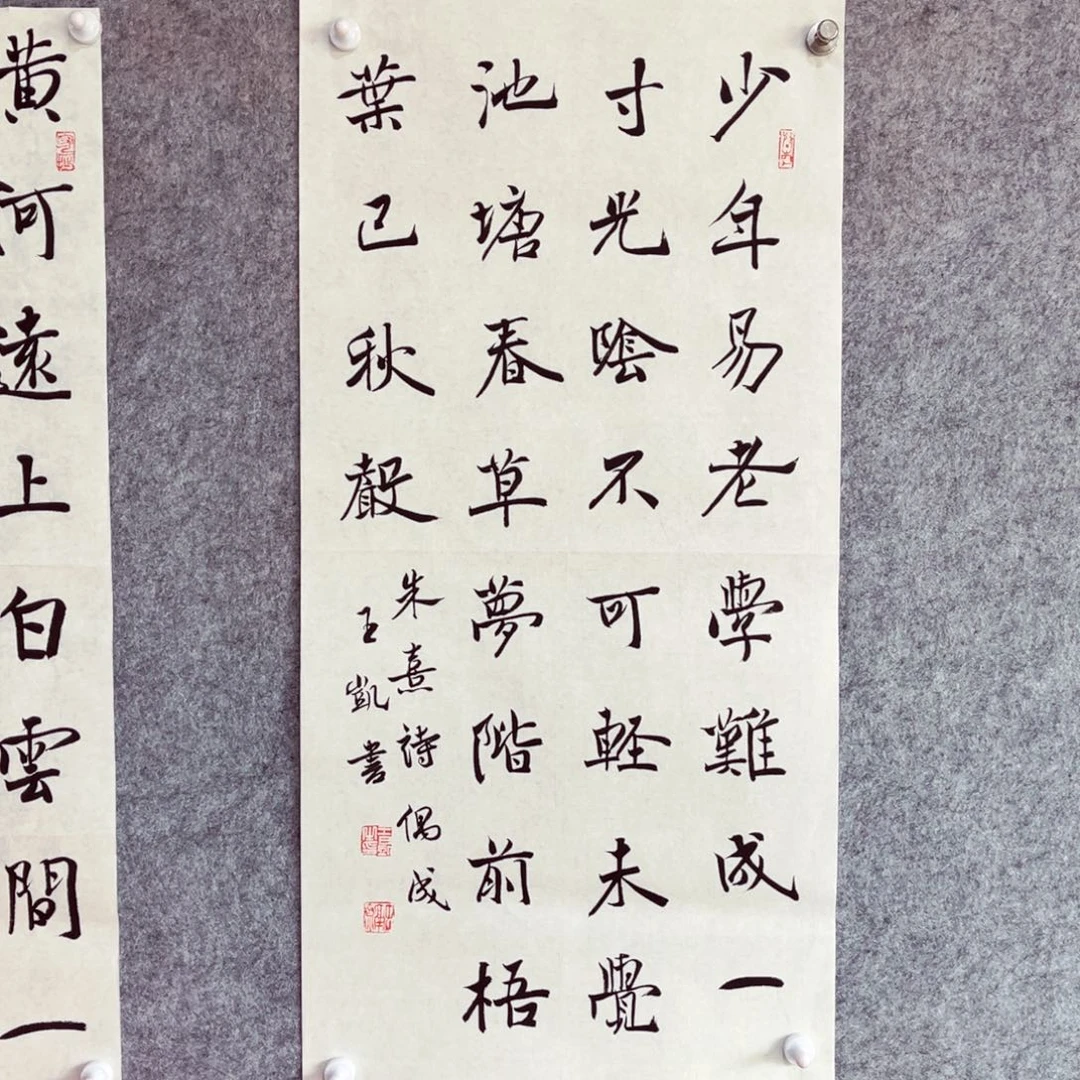 少年易老學難成一
寸光陰不可輕未覺
池塘春草夢階前梧
葉已秋聲
朱熹詩偶成
王凱書
黄河遠上白雲間一